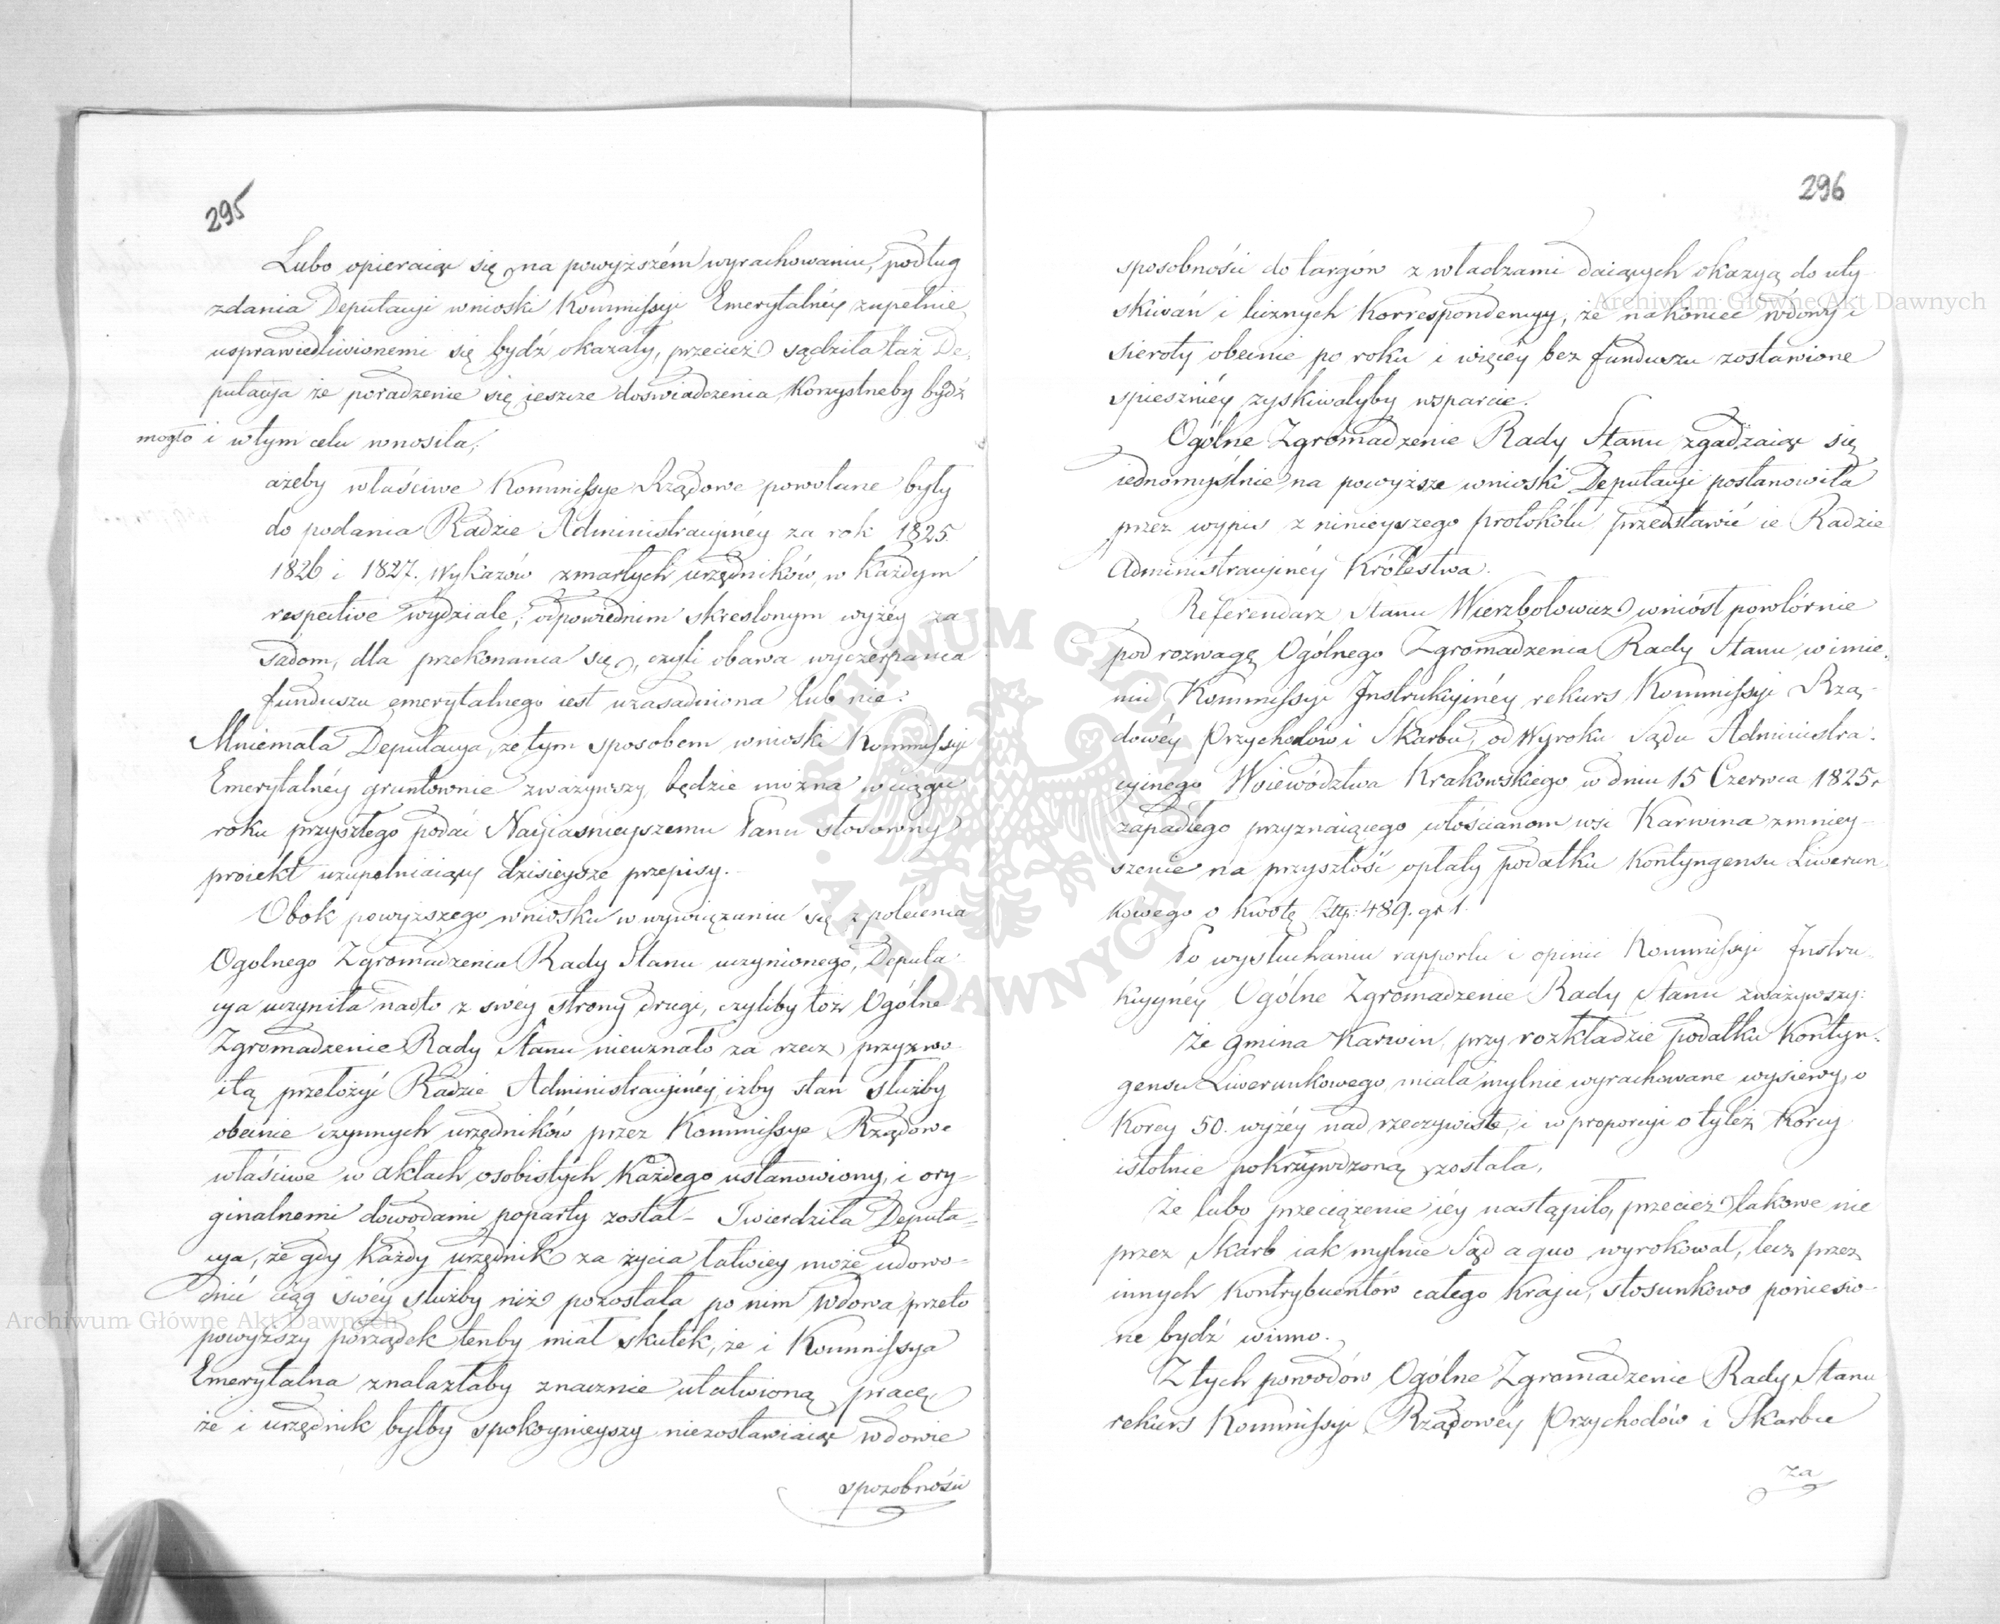 295
Lubo opieraiąc się na powyższém wyrachowaniu, podług
zdania Deputacyi wnioski Kommissyi Emerytalnéy zupełnie
usprawiedliwionemi się bydź okazały, przecież sądziła taż De-
putacya że poradzenie się ieszcze doświadczenia korzystneby bydź
mogło i w tym celu wnosiła,
ażeby właściwe Kommissye Rządowe powołane były
do podania Radzie Administracyinéy za rok 1825
1826 i 1827. Wykazów zmarłych urzędników, w każdym
respective wydziale, odpowiednim skreślonym wyżéy za-
sadom, dla przekonania się, czyli obawa wyczerpania
funduszu emerytalnego iest uzasadniona lub nie.
Mniemała Deputacya, że tym sposobem wnioski Kommissyi
Emerytalnéy gruntownie zważywszy będzie można w ciągu
roku przyszłego podać Nayiaśnieyszemu Panu stosowny
proiekt uzupełniaiący dzisieysze przepisy.
Obok powyższego wniosku w wywiązaniu się z polecenia
Ogolnego Zgromadzenia Rady Stanu uczynionego, Deputa-
cya uczyniła nadto z swéy strony drugi, czyliby toż Ogólne
Zgromadzenie Rady Stanu nieuznało za rzecz przyzwo-
itą przełożyć Radzie Administracyinéy, iżby stan służby
obecnie czynnych urzędników przez Kommissye Rządowe
właściwe w aktach osobistych każdego ustanowiony, i ory-
ginalnemi dowodami poparty został – Twierdziła Deputa-
cya, że gdy każdy urzędnik za życia łatwiey może udowo-
dnić ciąg swéy służby niż pozostała po nim wdowa przeto
powyższy porządek tenby miał skutek, że i Kommissya
Emerytalna znalazłaby znacznie ułatwioną pracę
że i urzędnik byłby spokoynieyszy niezostawiaiąc wdowie
sposobności
296
sposobności do targów z władzami daiących okazyą do uty-
skiwań i licznych Korrespondencyy, że nakoniec wdowy i
sieroty obecnie po roku i więcéy bez funduszu zostawione
spieszniéy zyskiwałyby wsparcie.
Ogólne Zgromadzenie Rady Stanu zgadzaiąc się
iednomyślnie na powyższe wnioski Deputacyi postanowiła
przez wypis z ninieyszego protokółu przedstawić ie Radzie
Administracyinéy Królestwa.
Referendarz Stanu Wierzbołowicz wniósł powtórnie
pod rozwagę Ogólnego Zgromadzenia Rady Stanu w imie-
niu Kommissyi Instrukcyinéy rekurs Kommissyi Rzą-
dowéy Przychodów i Skarbu, od Wyroku Sądu Administra-
cyinego Woiewództwa Krakowskiego w dniu 15 Czerwca 1825 r
zapadłego przyznaiącego włościanom wsi Karwina zmniey-
szenie na przyszłość opłaty podatku kontyngensu Liwerun-
kowego o kwotę Złtp: 489. gr 1.
Po wysłuchaniu rapportu i opinii Kommissyi Instru-
kcyynéy Ogólne Zgromadzenie Rady Stanu zważywszy:
Że gmina Karwin, przy rozkładzie podatku Kontyn-
gensu Liwerunkowego, miała mylnie wyrachowane wysiewy, o
Korcy 50. wyżéy nad rzeczywiste, i w proporcyi o tyleż Korcy
istotnie pokrzywdzoną została,
Że lubo przeciążenie iéy nastąpiło, przecież takowe nie
przez Skarb iak mylnie Sąd a quo wyrokował, lecz przez
innych kontrybuentów całego kraju, stosunkowo poniesio-
ne bydź winno.
Z tych powodów Ogólne Zgromadzenie Rady Stanu
rekurs Kommissyi Rządowéy Przychodów i Skarbu
za
Archiwum Główne Akt Dawnych
Archiwum Główne Akt Dawnych
ARCHIWUM GŁÓWNE AKT DAWNYCH